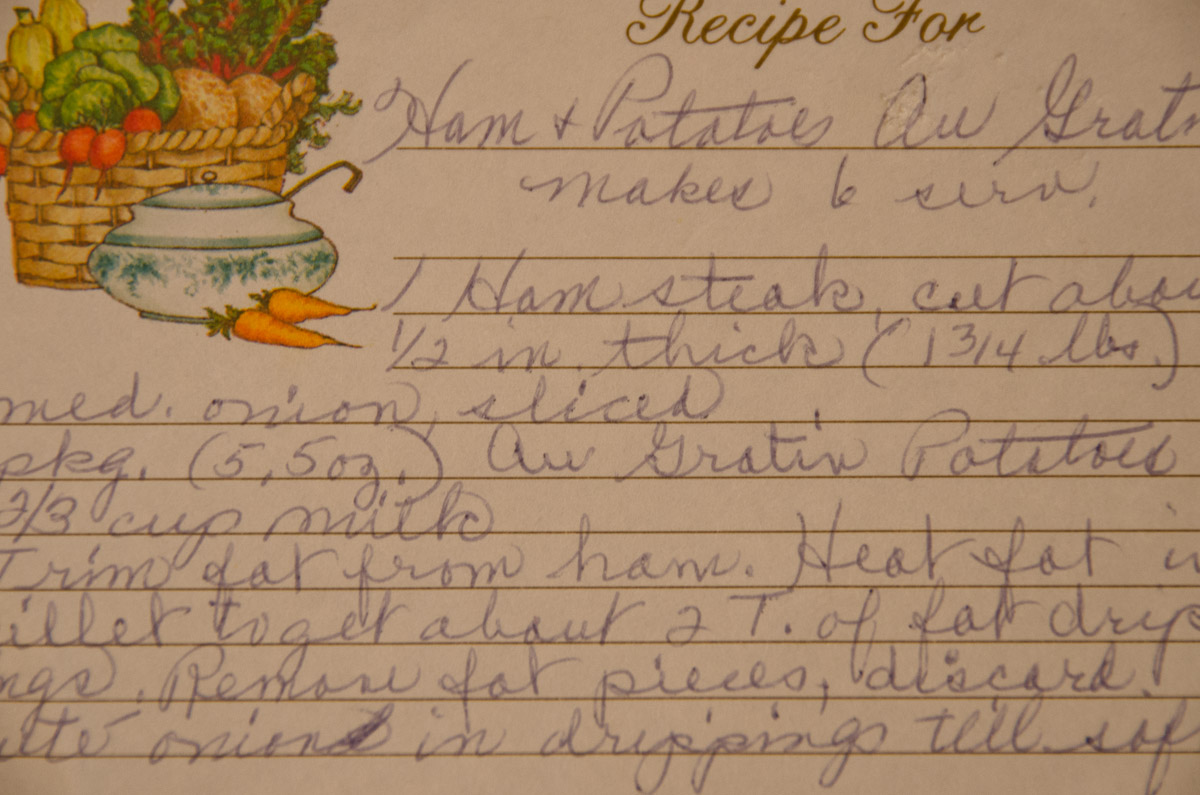 Recipe For
Ham & Potatoes Au Grat
makes 6 serv.
1 Ham steak, cut abou
1/2 in. thick (1 3/4 lbs.)
med. onion, sliced
pkg. (5.5 oz.) Au Gratin Potatoes
2/3 cup milk
Trim fat from ham. Heat fat in
illet to get about 2 T. of fat drip
ngs. Remove fat pieces, discard.
uté onion in drippings till sof